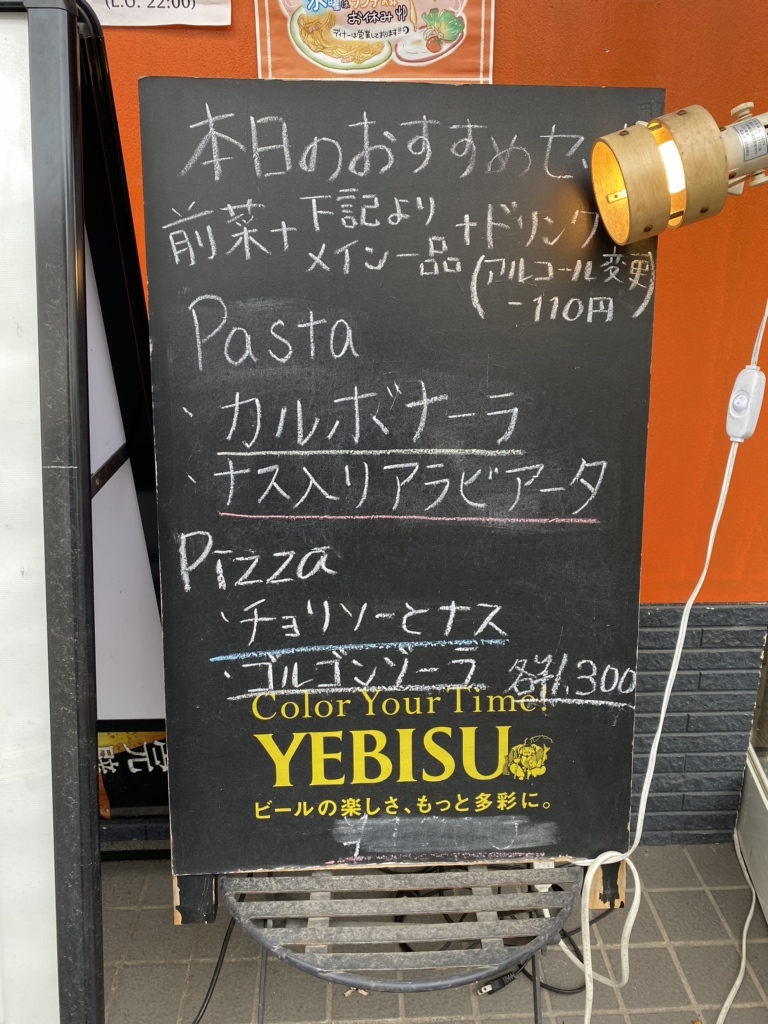 (L.O. 22:00)
お休み
ディナーは営業しております!!
本日のおすすめセ
前菜+下記よりメイン一品+ドリンク
(アルコール変更-110円)
Pasta
・カルボナーラ
・ナス入りアラビアータ
Pizza
・チョリソーとナス
・ゴルゴンゾーラ 各¥1,300
Color Your Time!
YEBISU
ビールの楽しさ、もっと多彩に。